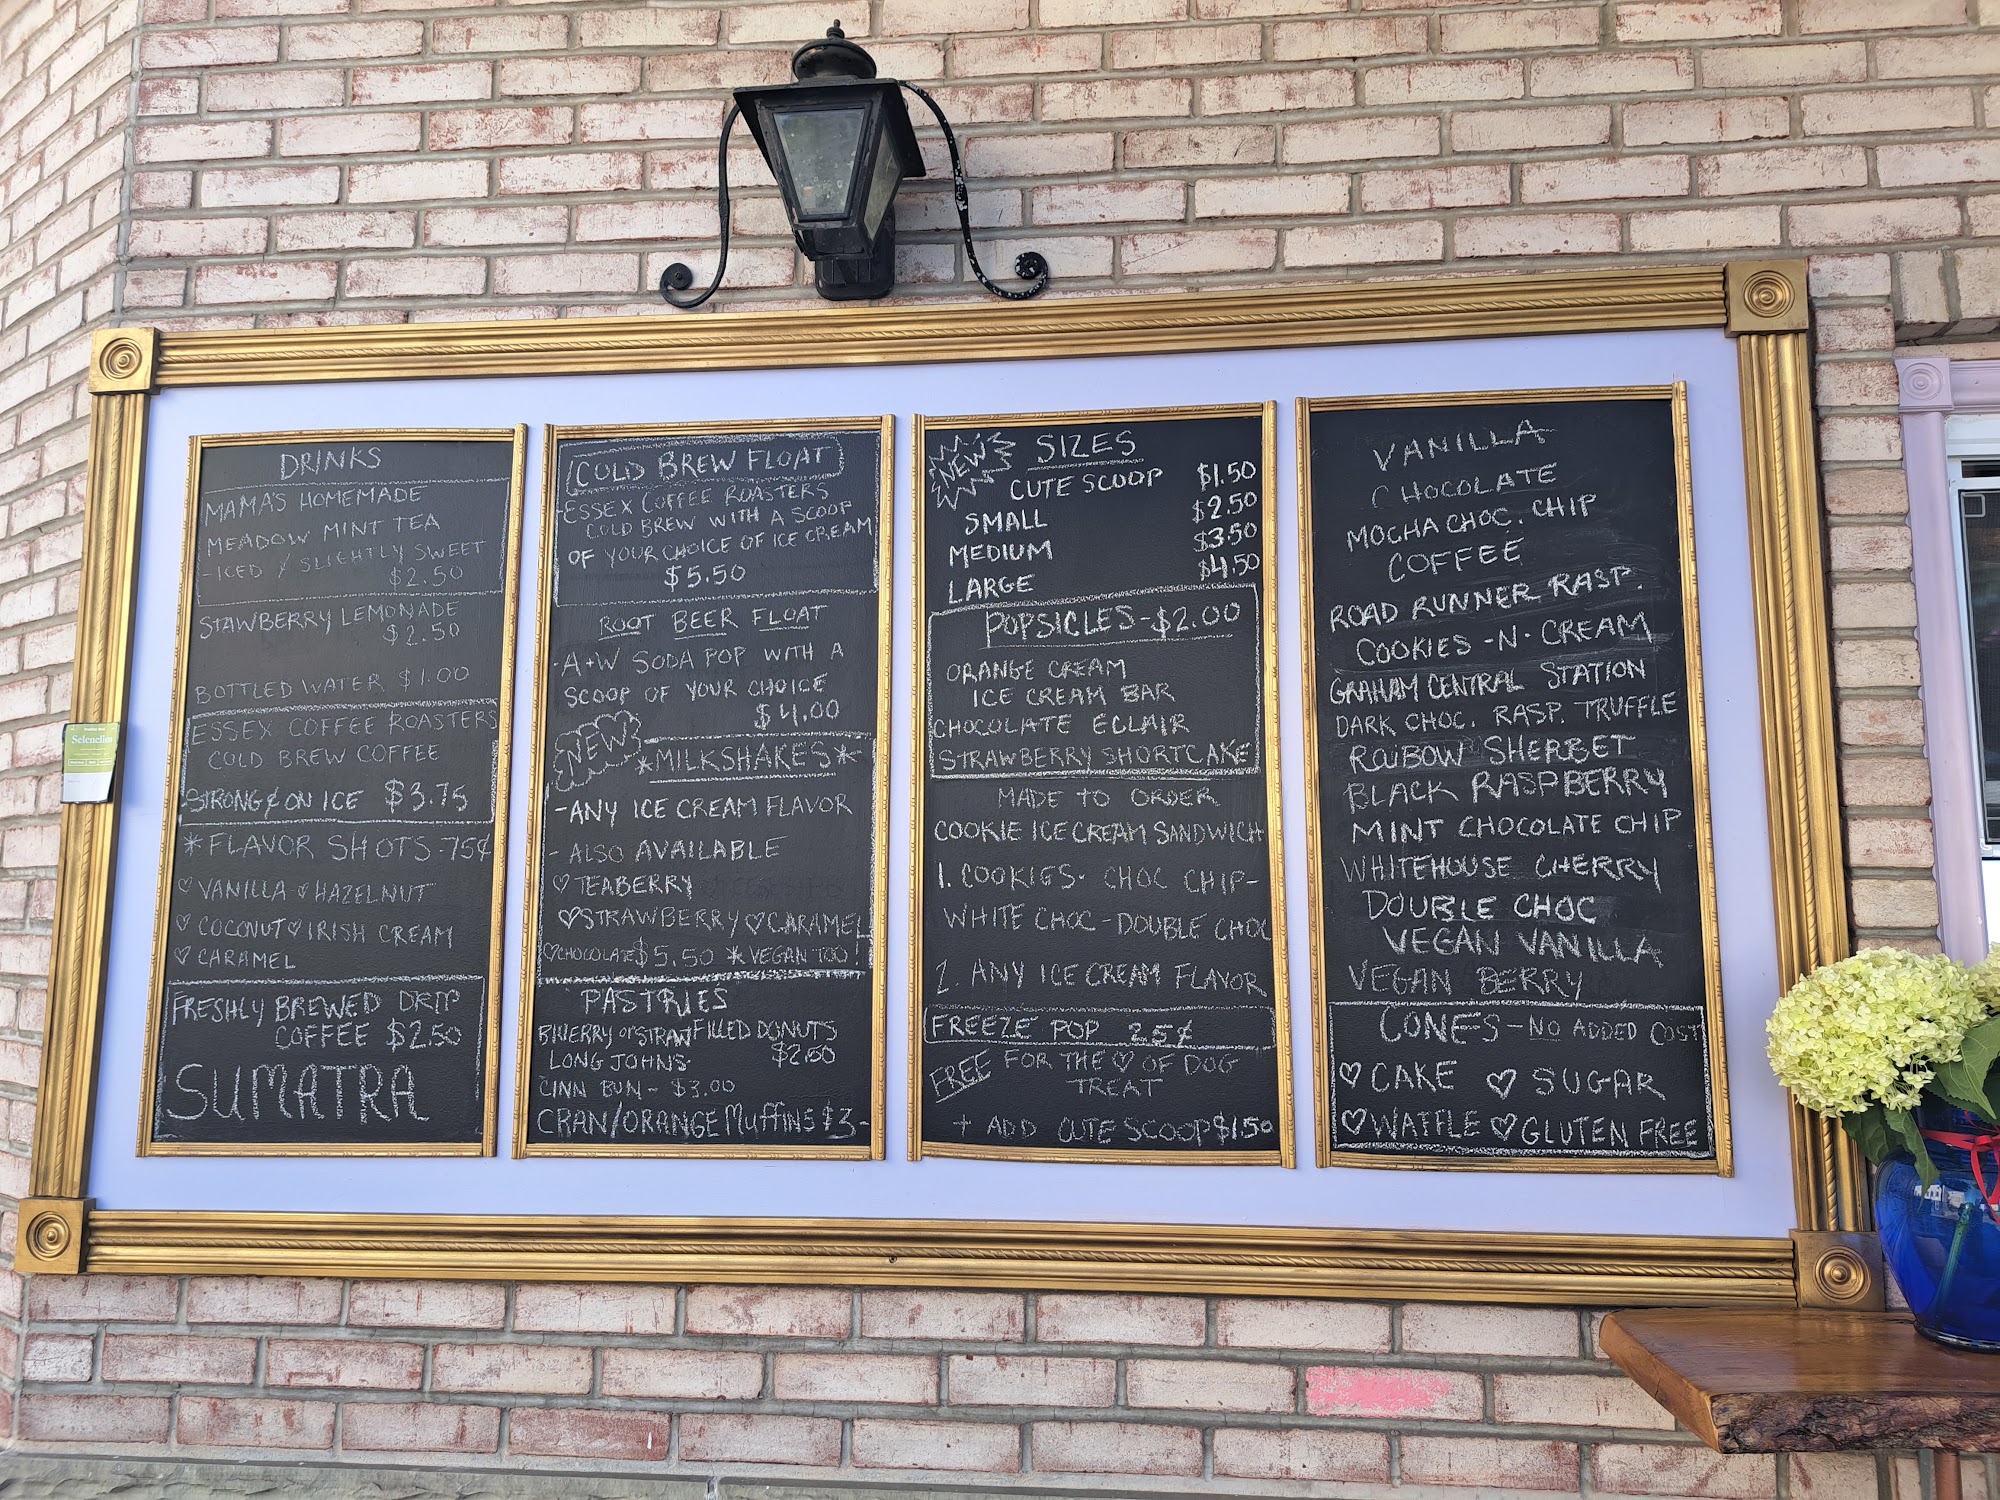 DRINKS
MAMA'S HOMEMADE
MEADOW MINT TEA
-ICED / SLIGHTLY SWEET
$2.50
STAWBERRY LEMONADE
$2.50
BOTTLED WATER $1.00
ESSEX COFFEE ROASTERS
COLD BREW COFFEE
STRONG & ON ICE $3.75
*FLAVOR SHOTS-75¢
♡ VANILLA ♡ HAZELNUT
♡ COCONUT ♡ IRISH CREAM
♡ CARAMEL
FRESHLY BREWED DRIP
COFFEE $2.50
SUMATRA
COLD BREW FLOAT
-ESSEX COFFEE ROASTERS
COLD BREW WITH A SCOOP
OF YOUR CHOICE OF ICE CREAM
$5.50
ROOT BEER FLOAT
-A+W SODA POP WITH A
SCOOP OF YOUR CHOICE
$4.00
NEW
*MILKSHAKES*
-ANY ICE CREAM FLAVOR
- ALSO AVAILABLE
♡ TEABERRY
♡STRAWBERRY ♡CARAMEL
♡CHOCOLATE $5.50 *VEGAN TOO!
PASTRIES
or STRAW FILLED DONUTS
LONG JOHNS $2.00
CINN BUN - $3.00
CRAN/ORANGE MUFFINS $3-
NEW SIZES
CUTE SCOOP $1.50
SMALL $2.50
MEDIUM $3.50
LARGE $4.50
POPSICLES-$2.00
ORANGE CREAM
ICE CREAM BAR
CHOCOLATE ECLAIR
STRAWBERRY SHORTCAKE
MADE TO ORDER
COOKIE ICE CREAM SANDWICH
1. COOKIES- CHOC CHIP-
WHITE CHOC-DOUBLE CHOC
2. ANY ICE CREAM FLAVOR
FREEZE POP 25¢
FREE FOR THE ♡ OF DOG
TREAT
+ ADD CUTE SCOOP $1.50
VANILLA
CHOCOLATE
MOCHA CHOC. CHIP
COFFEE
ROAD RUNNER RASP.
COOKIES -N- CREAM
GRAHAM CENTRAL STATION
DARK CHOC. RASP. TRUFFLE
RAIBOW SHERBET
BLACK RASPBERRY
MINT CHOCOLATE CHIP
WHITEHOUSE CHERRY
DOUBLE CHOC
VEGAN VANILLA
VEGAN BERRY
CONES - NO ADDED COST
♡ CAKE ♡ SUGAR
♡WAFFLE ♡GLUTEN FREE